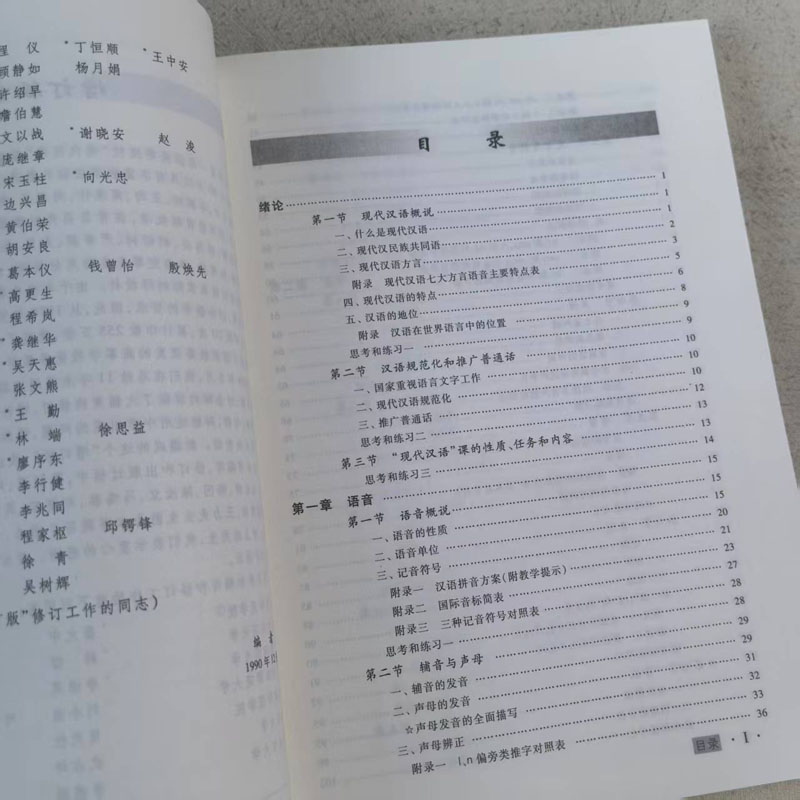 程 仪 *丁恒顺 *王中安
顾静如 杨月娟
许绍早
詹伯慧
文以战 *谢晓安 赵 浚
庞继章
宋玉柱 *向光忠
边兴昌
黄伯荣
胡安良
葛本仪 钱曾怡 殷焕先
*高更生
程希岚
*龚继华
*吴天惠
张文熊
*王 勤
*林 端 徐思益
*廖序东
李行健
李兆同
程家枢 邱锷锋
徐 青
吴树辉
版”修订工作的同志)
编
1990年
目 录
绪论 1
第一节 现代汉语概说 1
一、什么是现代汉语 1
二、现代汉民族共同语 2
三、现代汉语方言 3
附录 现代汉语七大方言语音主要特点表 5
四、现代汉语的特点 6
五、汉语的地位 8
附录 汉语在世界语言中的位置 9
思考和练习一 9
第二节 汉语规范化和推广普通话 10
一、国家重视语言文字工作 10
二、现代汉语规范化 10
三、推广普通话 12
思考和练习二 13
第三节 “现代汉语”课的性质、任务和内容 13
思考和练习三 14
第一章 语音 15
第一节 语音概说 15
一、语音的性质 15
二、语音单位 20
三、记音符号 21
附录一 汉语拼音方案(附教学提示) 23
附录二 国际音标简表 27
附录三 三种记音符号对照表 28
思考和练习一 28
第二节 辅音与声母 29
一、辅音的发音 29
二、声母的发音 31
☆声母发音的全面描写 32
三、声母辨正 33
附录一 l,n偏旁类推字对照表 36
目录 · I ·